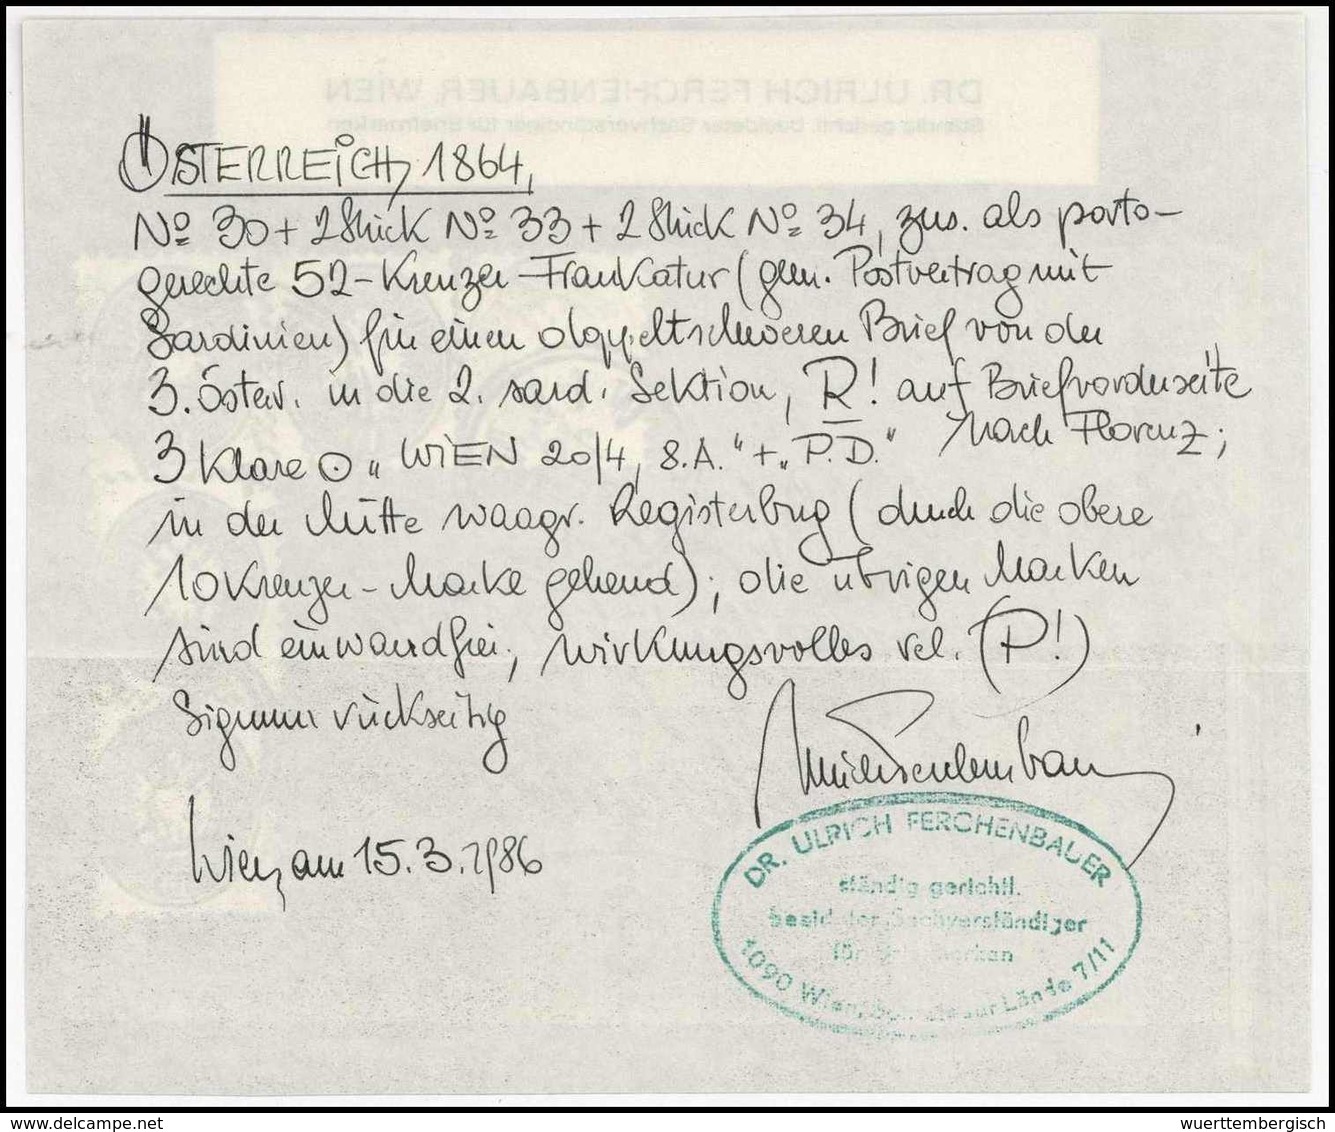 DR. ULRICH FERCHENBAUER, WIEN
Ständig gerichtl. beeideter Sachverständiger für Briefmarken
ÖSTERREICH, 1864,
Nº 30 + 2 Stück Nº 33 + 2 Stück Nº 34, zus. als porto-
gerechte 52-Kreuzer-Frankatur (gem. Postvertrag mit
Sardinien) für einen doppeltschweren Brief von der
3. Österr. in die 2. sard. Sektion, R! auf Briefvorderseite
3 klare ⊙ „WIEN 20/4, 8.A." + „P.D." nach Florenz;
in der Mitte waagr. Registerbug (durch die obere
10 Kreuzer-Marke gehend); die übrigen Marken
sind einwandfrei, wirkungsvolles rel. (P!)
Signum rückseitig
Wien, am 15.3.1986
DR. ULRICH FERCHENBAUER
ständig gerichtl.
beeideter Sachverständiger
für Briefmarken
1090 Wien, Lände 7/11
delcampe.net
wuerttembergisch